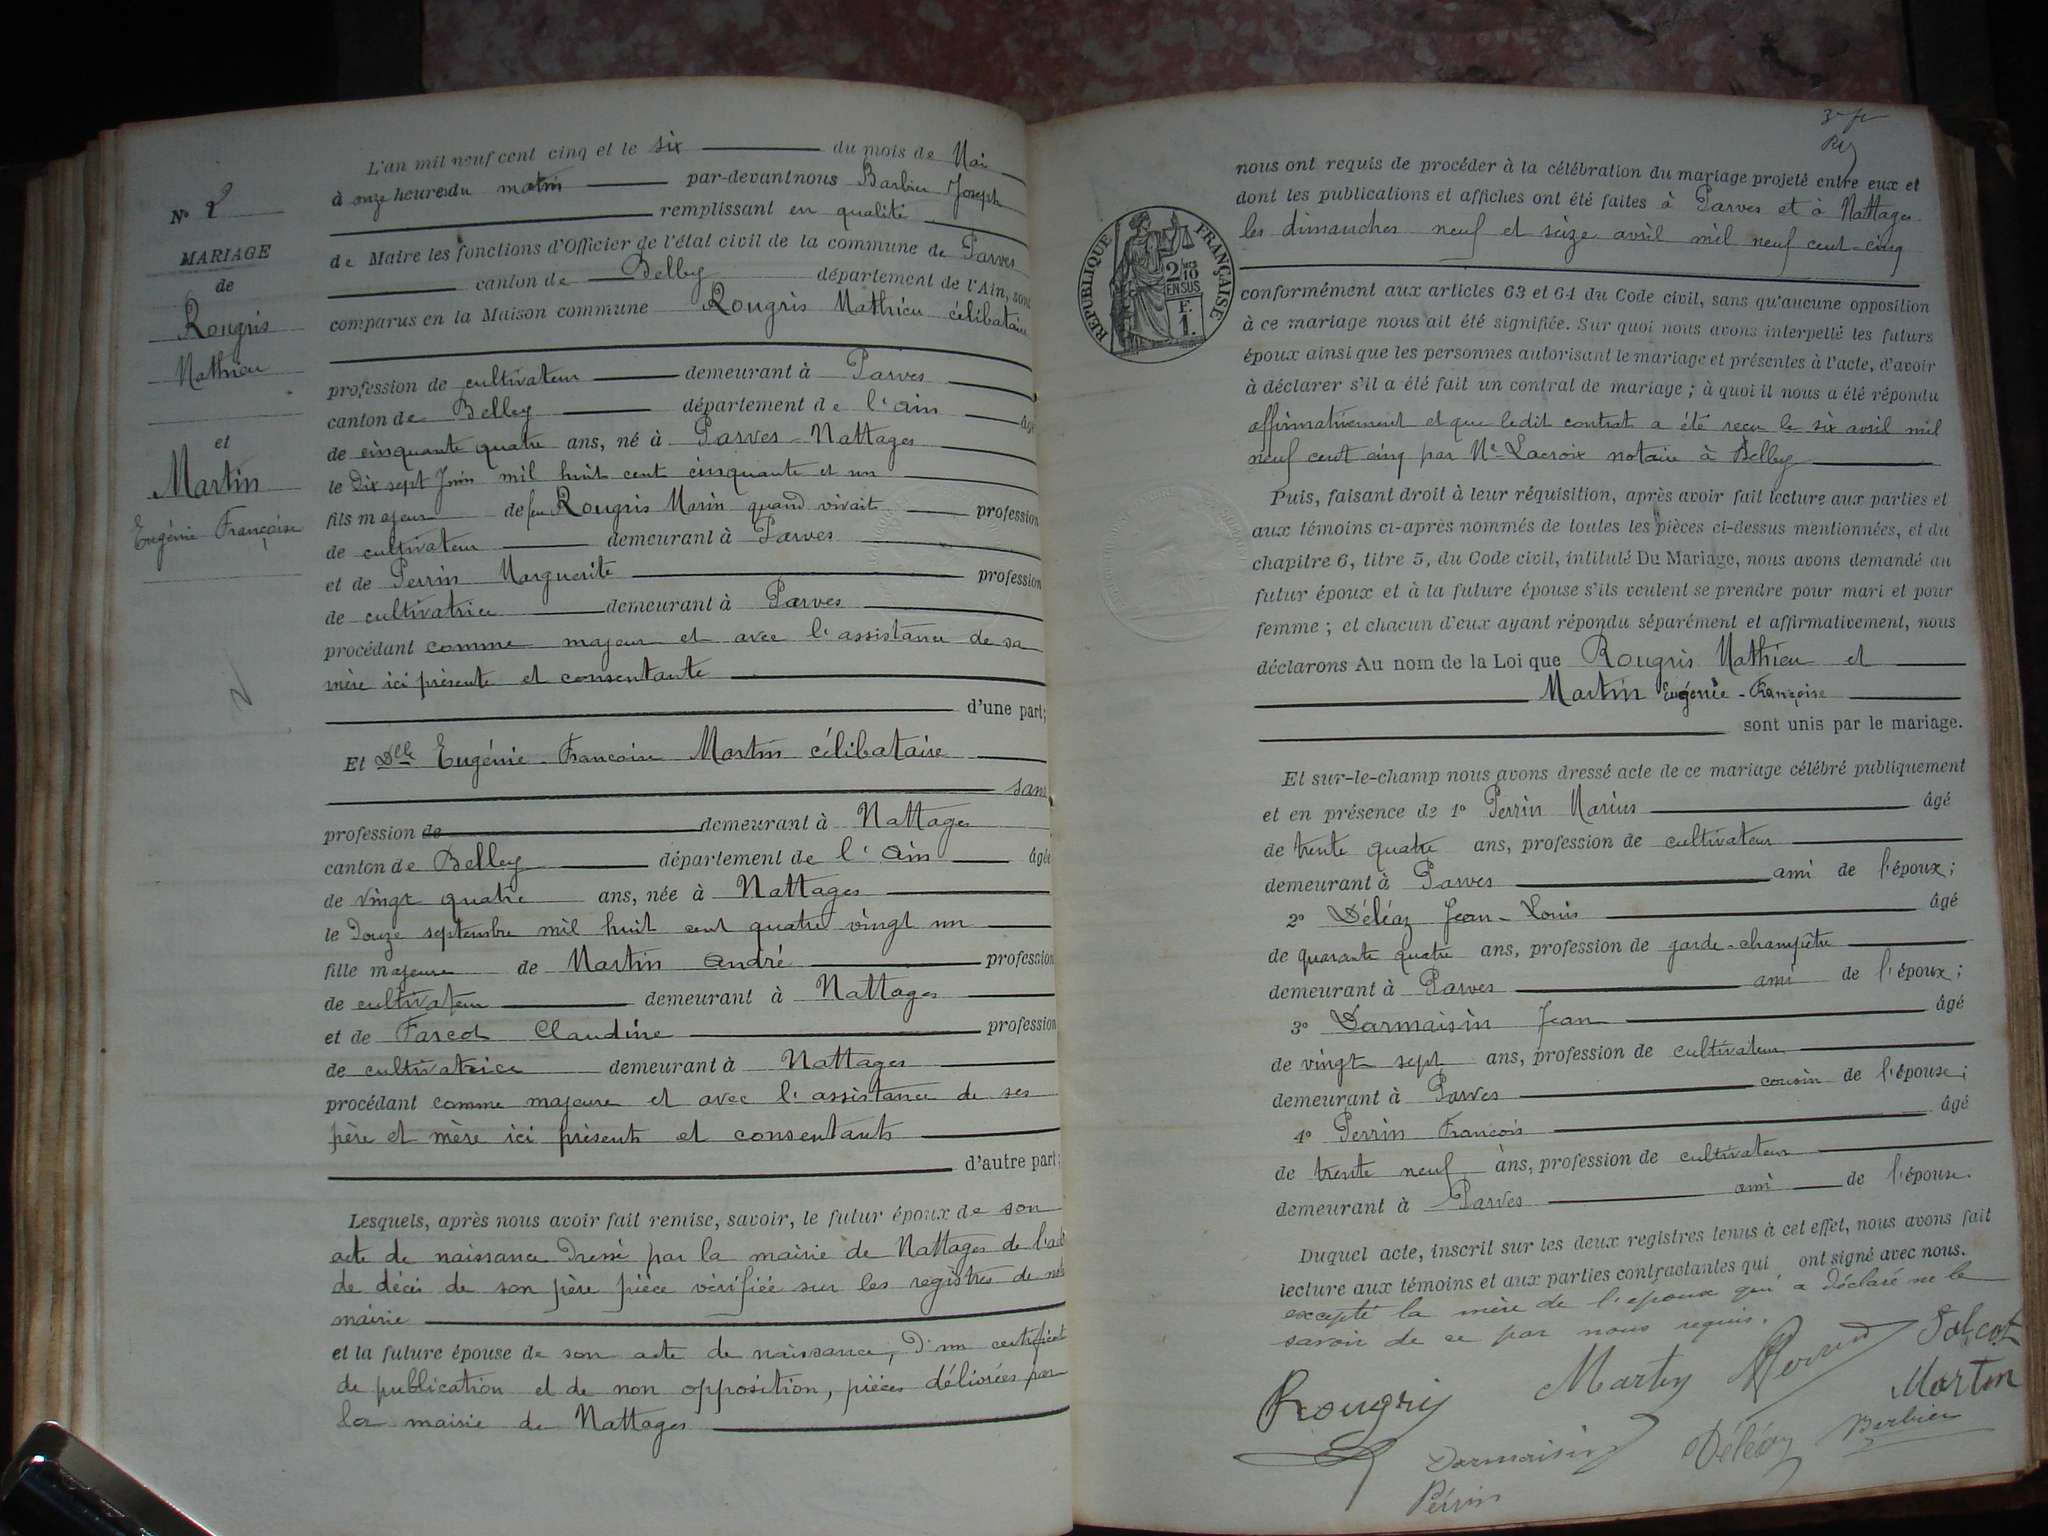 N° 2
MARIAGE
de
Rougris
Mathieu
et
Martin
Eugénie Françoise
L'an mil neuf cent cinq et le six du mois de Mai
à onze heures du matin par-devant nous Barbier Joseph
remplissant en qualité
de Maire les fonctions d'Officier de l'état civil de la commune de Parves
canton de Belley département de l'Ain, sont
comparus en la Maison commune Rougris Mathieu célibataire
profession de cultivateur demeurant à Parves
canton de Belley département de l'Ain âgé
de cinquante quatre ans, né à Parves-Nattages
le dix sept Juin mil huit cent cinquante et un
fils majeur de feu Rougris Marin quand vivait profession
de cultivateur demeurant à Parves
et de Perrin Marguerite profession
de cultivatrice demeurant à Parves
procédant comme majeur et avec l'assistance de sa
mère ici présente et consentante
d'une part;
Et Dlle Eugénie-Françoise Martin célibataire
sans
profession de demeurant à Nattages
canton de Belley département de l'Ain âgée
de vingt quatre ans, née à Nattages
le douze septembre mil huit cent quatre vingt un
fille majeure de Martin André profession
de cultivateur demeurant à Nattages
et de Farcot Claudine profession
de cultivatrice demeurant à Nattages
procédant comme majeure et avec l'assistance de ses
père et mère ici présents et consentants
d'autre part;
Lesquels, après nous avoir fait remise, savoir, le futur époux de son
acte de naissance dressé par la mairie de Nattages de l'acte
de décès de son père pièce vérifiée sur les registres de notre
mairie
et la future épouse de son acte de naissance, d'un certificat
de publication et de non opposition, pièces délivrées par
la mairie de Nattages
nous ont requis de procéder à la célébration du mariage projeté entre eux et
dont les publications et affiches ont été faites à Parves et à Nattages
les dimanches neuf et seize avril mil neuf cent-cinq
RÉPUBLIQUE FRANÇAISE
2/10
EN SUS
F.
1.
conformément aux articles 63 et 64 du Code civil, sans qu'aucune opposition
à ce mariage nous ait été signifiée. Sur quoi nous avons interpellé les futurs
époux ainsi que les personnes autorisant le mariage et présentes à l'acte, d'avoir
à déclarer s'il a été fait un contrat de mariage; à quoi il nous a été répondu
affirmativement et que ledit contrat a été reçu le six avril mil
neuf cent cinq par Me Lacroix notaire à Belley
Puis, faisant droit à leur réquisition, après avoir fait lecture aux parties et
aux témoins ci-après nommés de toutes les pièces ci-dessus mentionnées, et du
chapitre 6, titre 5, du Code civil, intitulé Du Mariage, nous avons demandé au
futur époux et à la future épouse s'ils veulent se prendre pour mari et pour
femme; et chacun d'eux ayant répondu séparément et affirmativement, nous
déclarons Au nom de la Loi que Rougris Mathieu et
Martin Eugénie-Françoise
sont unis par le mariage.
Et sur-le-champ nous avons dressé acte de ce mariage célébré publiquement
et en présence de 1° Perrin Marius âgé
de trente quatre ans, profession de cultivateur
demeurant à Parves ami de l'époux;
2° Déléaz Jean-Louis âgé
de quarante quatre ans, profession de garde-champêtre
demeurant à Parves ami de l'époux;
3° Darmaisin Jean âgé
de vingt sept ans, profession de cultivateur
demeurant à Parves cousin de l'épouse;
4° Perrin François âgé
de trente neuf ans, profession de cultivateur
demeurant à Parves ami de l'épouse.
Duquel acte, inscrit sur les deux registres tenus à cet effet, nous avons fait
lecture aux témoins et aux parties contractantes qui ont signé avec nous.
excepté la mère de l'époux qui a déclaré ne le
savoir de ce par nous requis.
Rougris Martin Perrin Farcot
Martin
Darmaisin Déléaz Barbier
Perrin